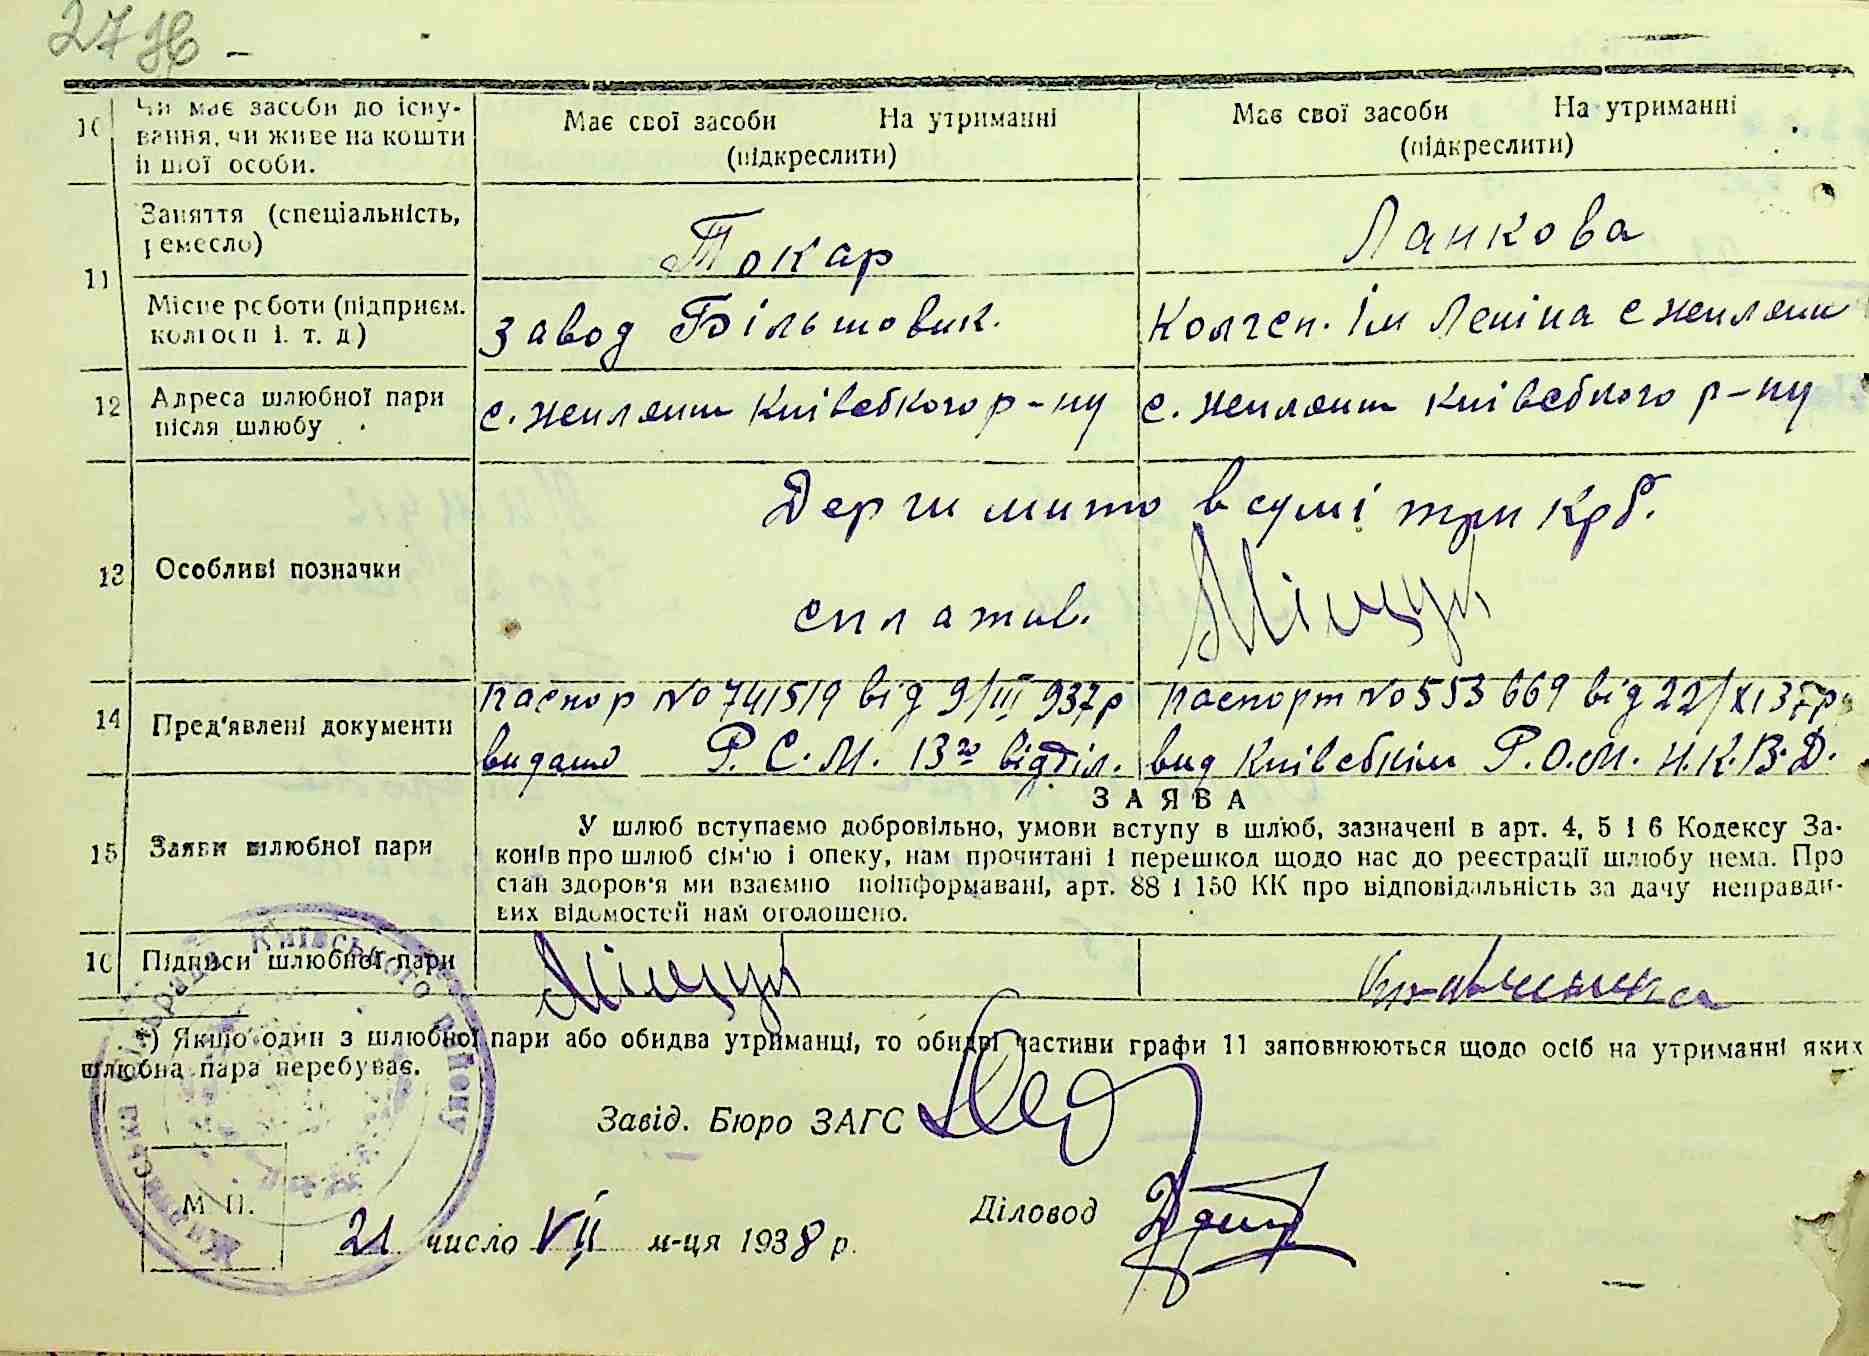 27
10 Чи має засоби до існу-
вання, чи живе на кошти
іншої особи.
Має свої засоби На утриманні
(підкреслити)
Має свої засоби На утриманні
(підкреслити)
11 Заняття (спеціальність,
ремесло)
Токар
Ланкова
Місце роботи (підприєм.
колгосп і. т. д)
завод Більшовик.
Колгсп. Ім Леніна с Жиляни
12 Адреса шлюбної пари
після шлюбу
с. Жиляни Київського р-ну
с. Жиляни Київського р-ну
13 Особливі позначки
Держ мито в сумі три крб.
сплатив.
14 Пред'явлені документи
Паспор No 741519 від 9/III 937р
видано Р. С. М. 13го відділ.
Паспорт No 553669 від 22/XI 37р
вид Київським Р.О.М. Н.К.В.Д.
15 Заяви шлюбної пари
ЗАЯВА
У шлюб вступаємо добровільно, умови вступу в шлюб, зазначені в арт. 4, 5 і 6 Кодексу За-
конів про шлюб сім'ю і опеку, нам прочитані і перешкод щодо нас до реєстрації шлюбу нема. Про
стан здоров'я ми взаємно поінформавані, арт. 88 і 150 КК про відповідальність за дачу неправди-
вих відомостей нам оголошено.
16 Підписи шлюбної пари
Кравченка
*) Якщо один з шлюбної пари або обидва утриманці, то обидві частини графи 11 заповнюються щодо осіб на утриманні яких
шлюбна пара перебуває.
Завід. Бюро ЗАГС
Діловод
М П.
21 число VII м-ця 1938 р.
Жилянська сільрада Київського району